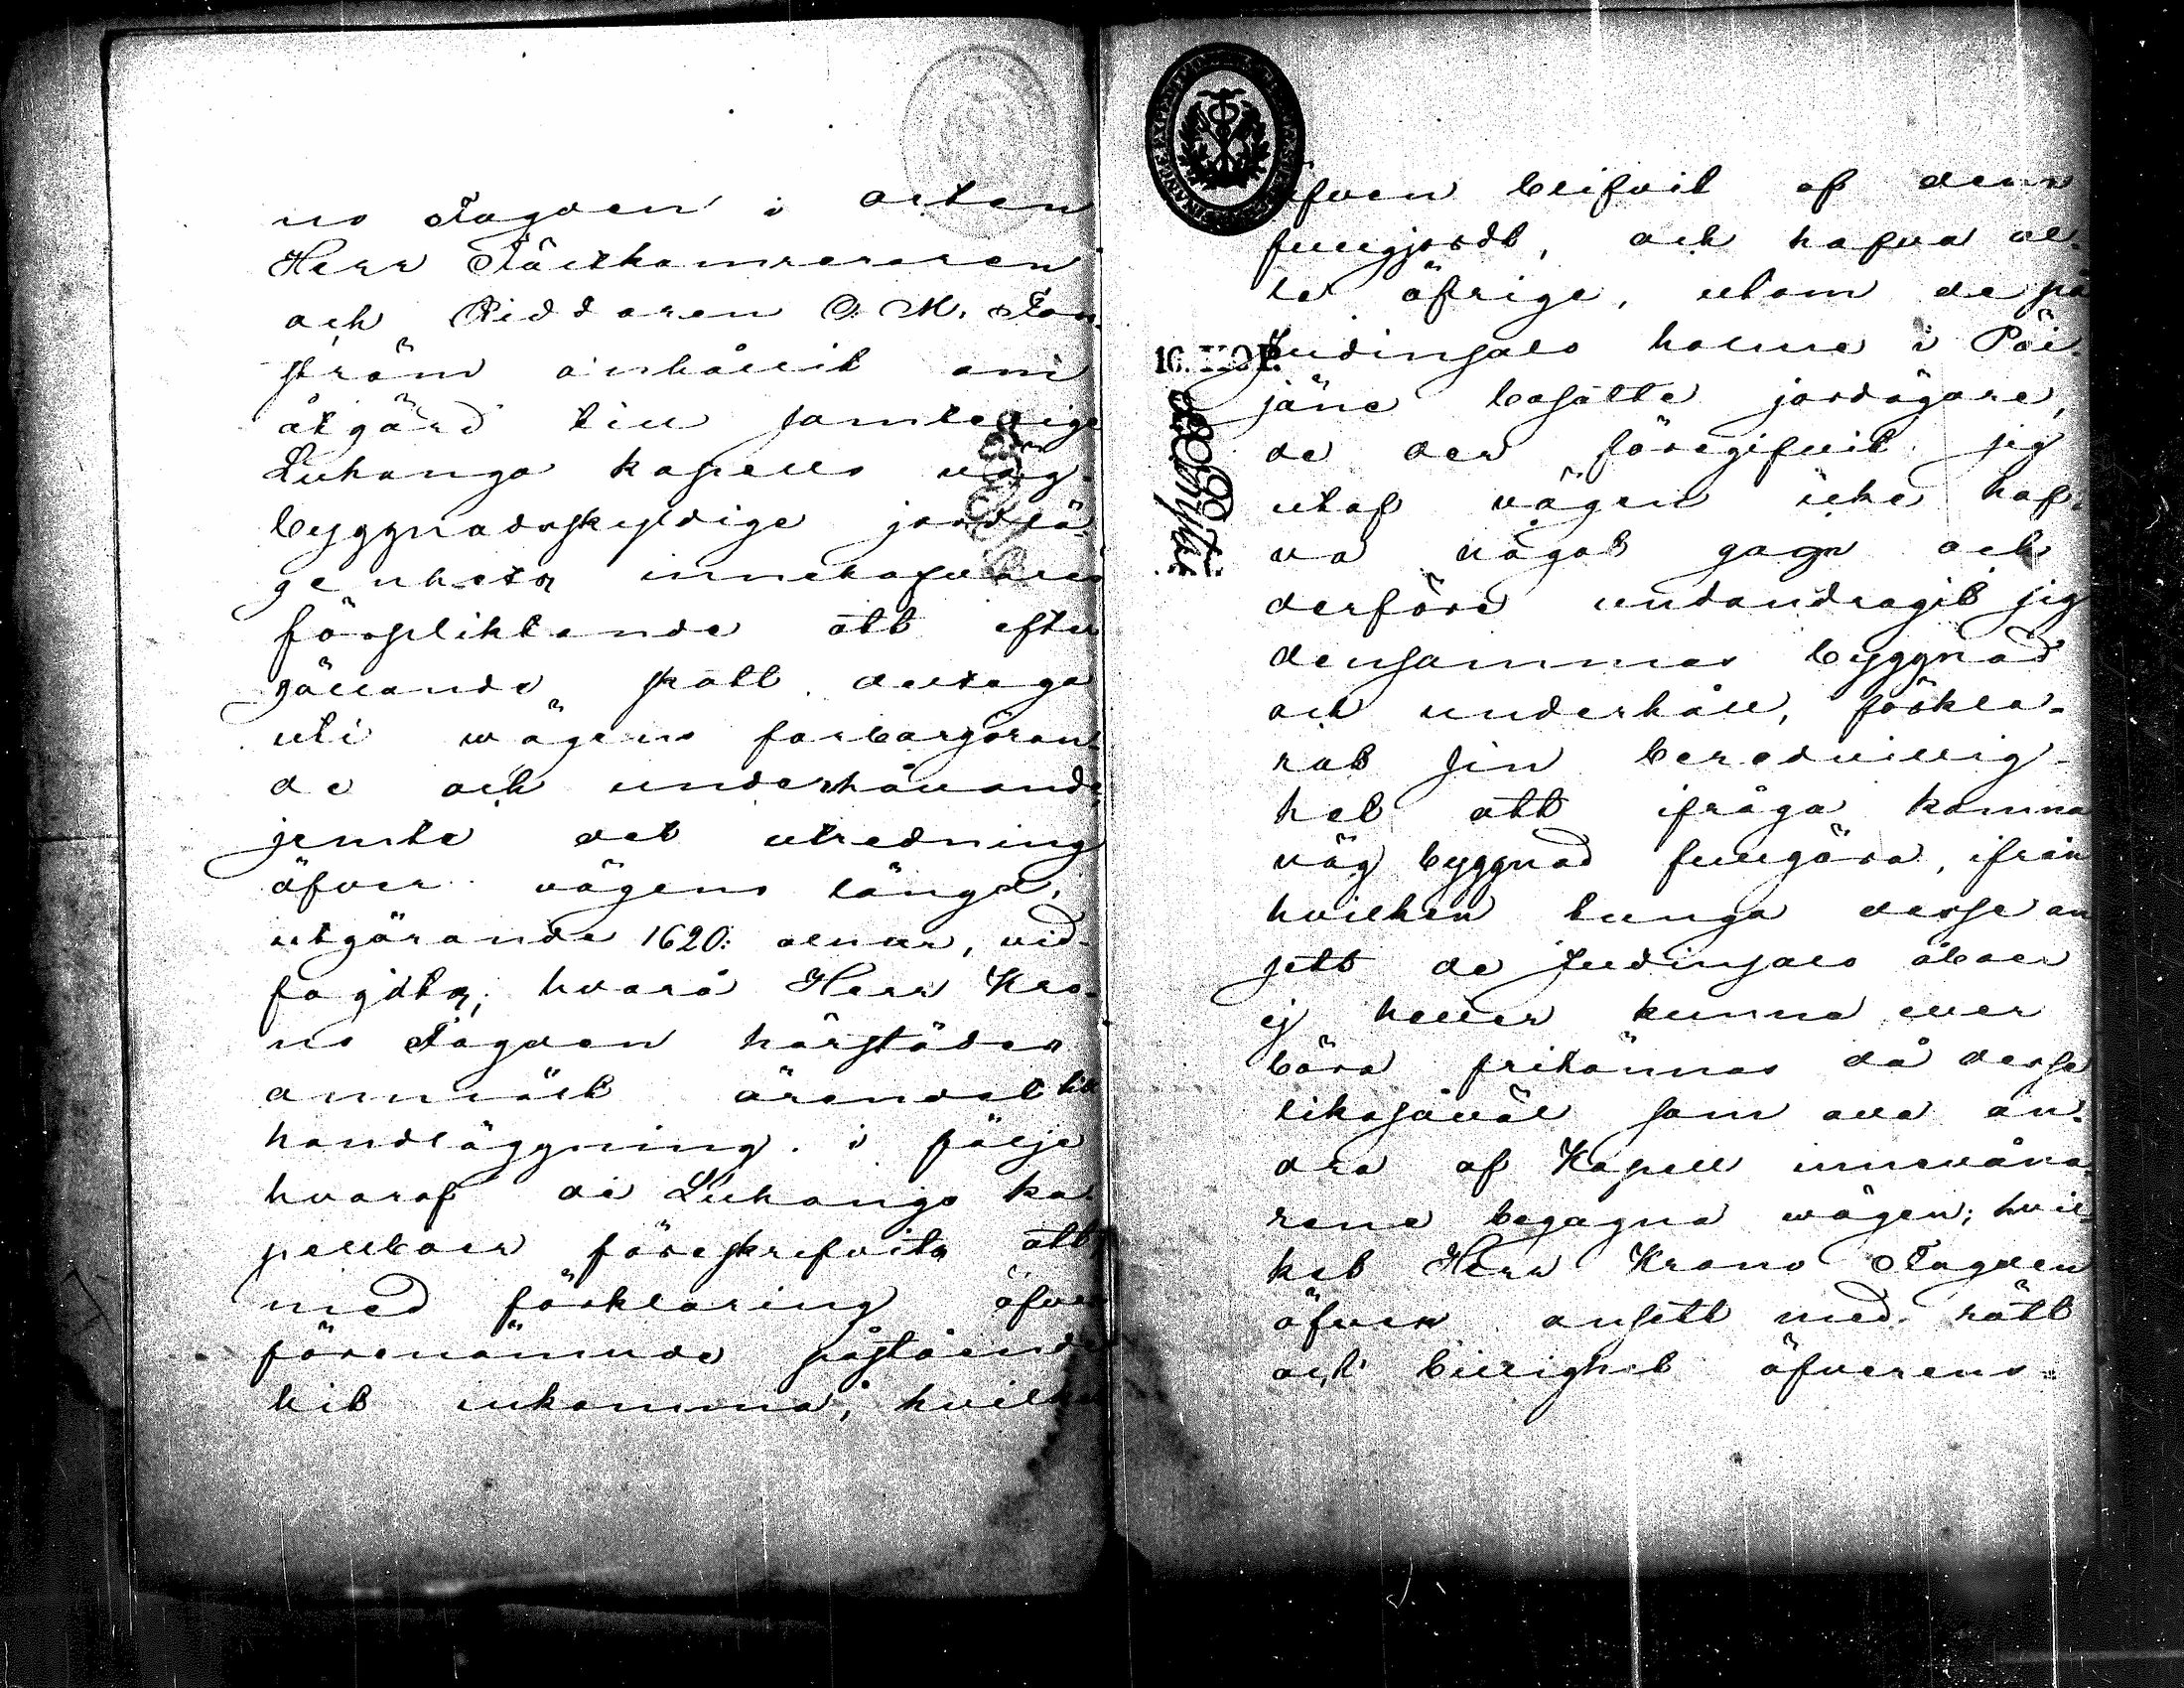 ns Fogden i orten
Herr Fältkamreraren
och Riddaren O. M. Fon-
ström anhållit om
åtgärd till samtelige
Luhanga kapells väg-
byggnadsskyldige jordlä-
genheters innehafvares
förpliktande att efter
gällande skatt deltaga
uti wägens farbargöran-
de och underhållande
jemte det utredning
öfver vägens längd,
utgörande 1620: alnar, vid-
fogats; hvarå Herr Kro-
no Fogden härstädes
anmält ärendet till
handläggning. i följe
hvaraf de Luhango ka-
pellboer föreskrefvits att
med förklaring öfver
förenämnde påstående
hit inkomma, hvilket
äfven blifvit af dem
fullgjordt, och hafva al-
le öfrige, utom de på
Judinsalo holme i Päi-
jäne bosatte jordägare,
de der föregifvit sig
utaf vägen icke haf-
va något gagn och
derföre undandragit sig
densammas byggnad
och underhåll, förkla-
rat sin beredvillig-
het att ifråga komna
väg byggnad fullgöra, ifrån
hvilken tunga desse an-
sett de Judinsalo åboer
ej heller kunna eller
böra fritännas då desse
likasåväl som alla an-
dra af Kapell innevåna-
rene begagna wägen; hvil-
ket Herr Krono Fogden
äfven ansett med rätt
och billighet öfverens-
16. KOP.